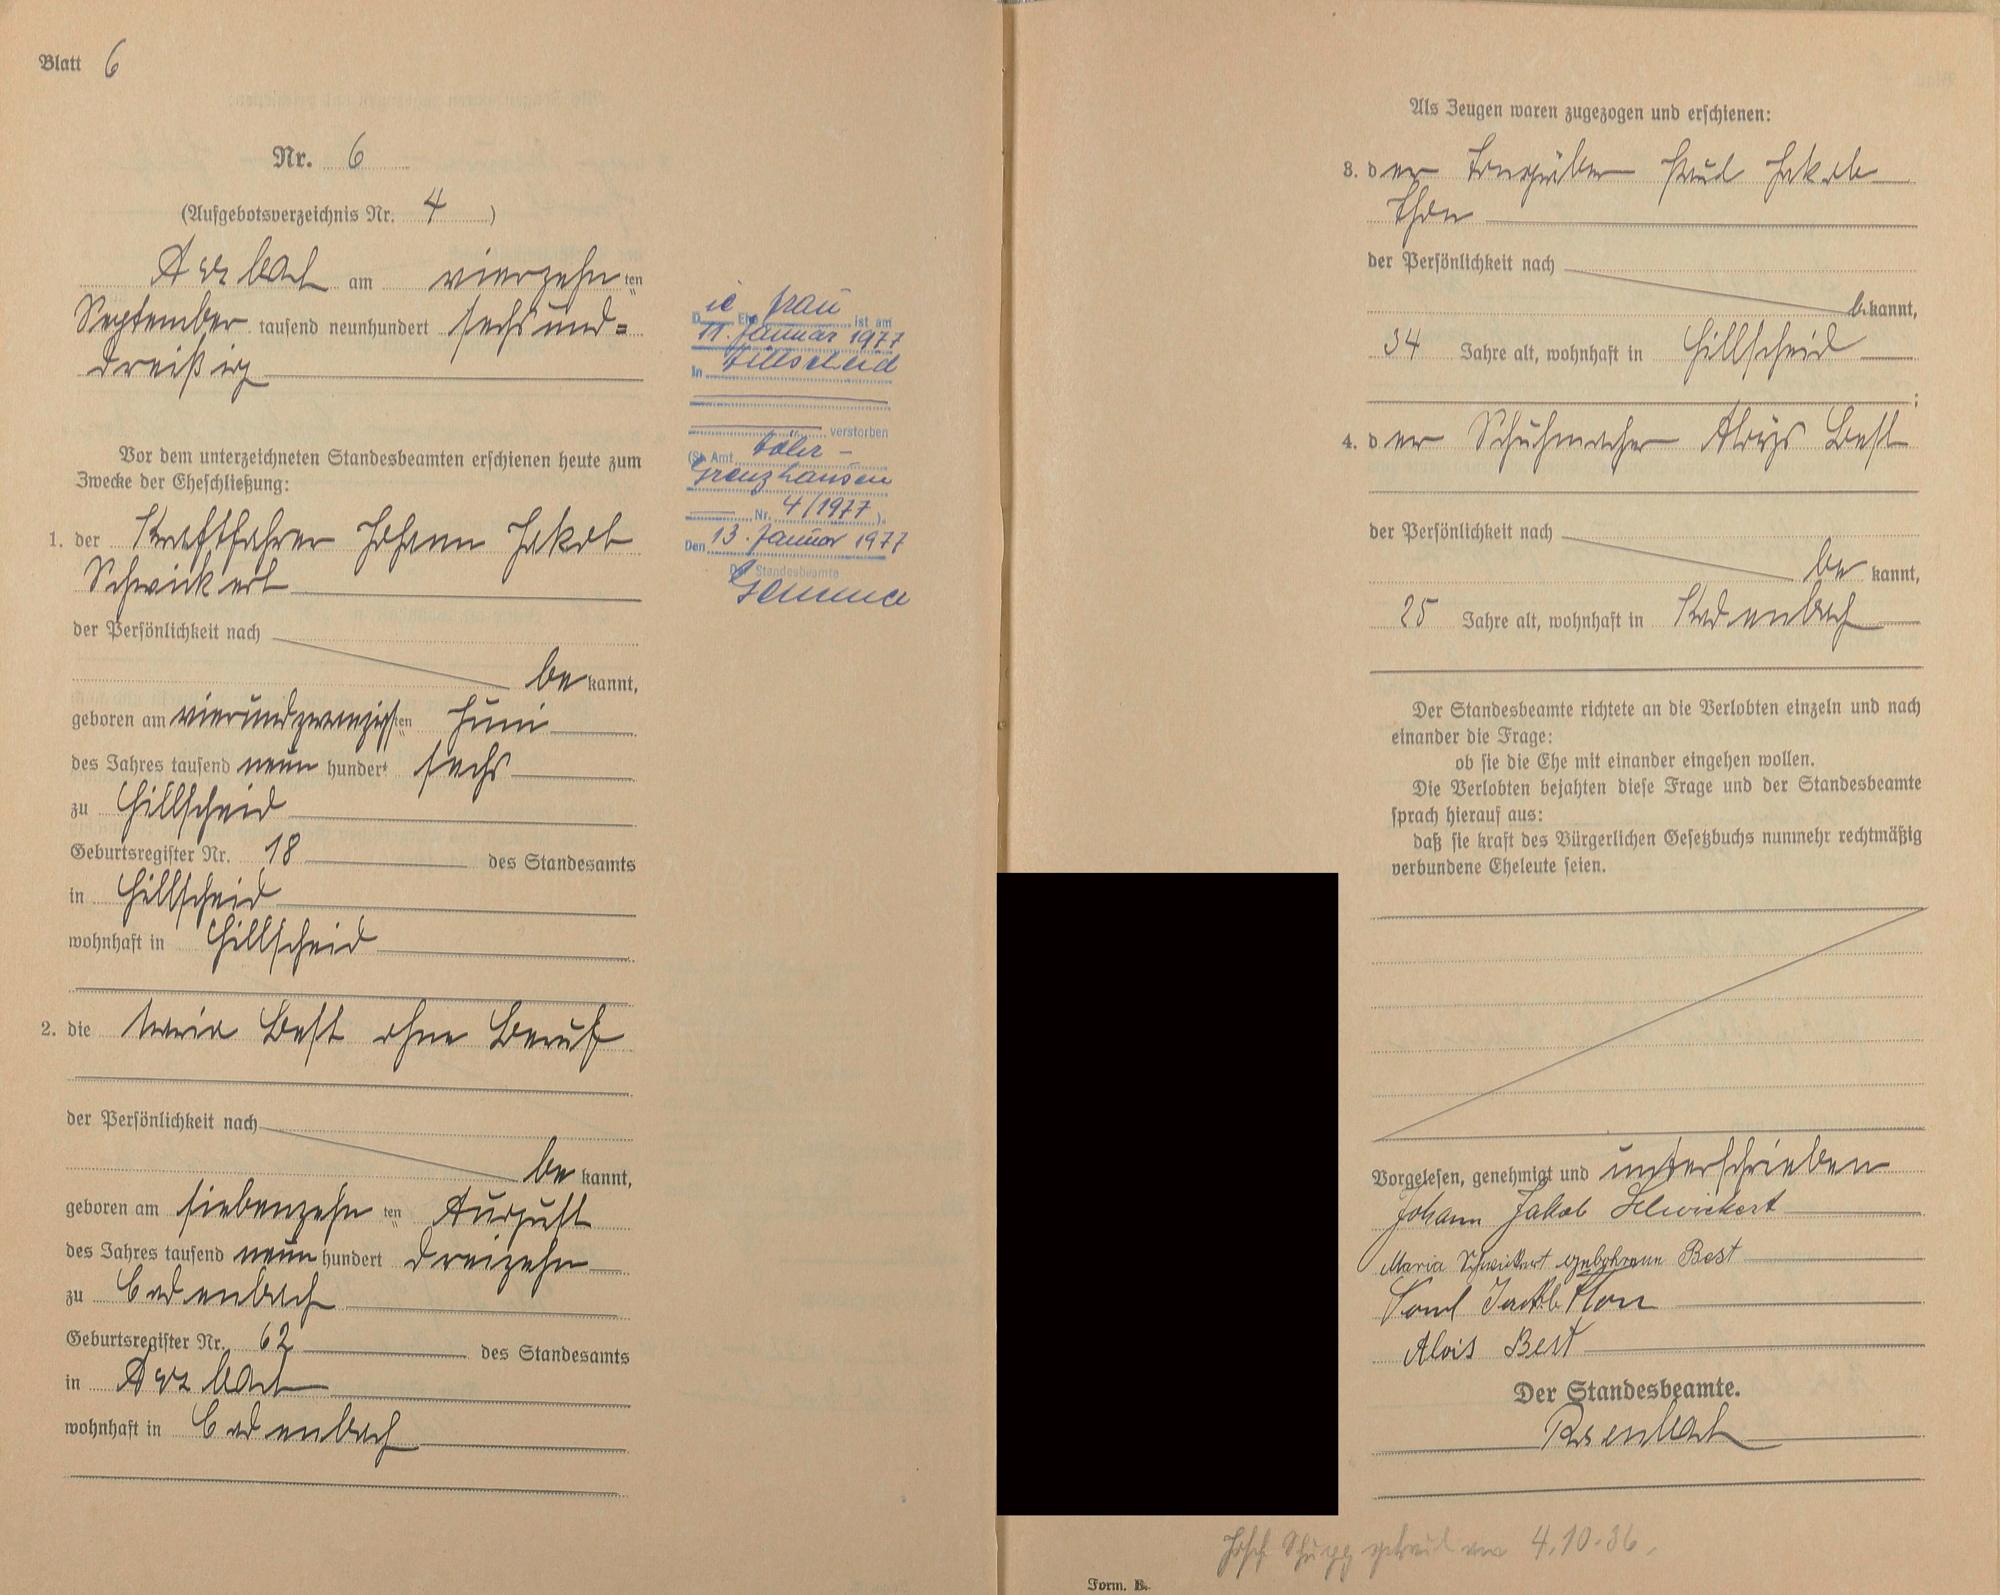 Blatt 6
Nr. 6
(Aufgebotsverzeichnis Nr. 4)
Arzbach am vierzehnten
September tausend neunhundert sechsund=
dreißig
Vor dem unterzeichneten Standesbeamten erschienen heute zum
Zwecke der Eheschließung:
1. der Kraftfahrer Johann Jakob
Schwickert
der Persönlichkeit nach
bekannt,
geboren am vierundzwanzigsten Juni
des Jahres tausend neunhundert sechs
zu Hillscheid
Geburtsregister Nr. 18 des Standesamts
in Hillscheid
wohnhaft in Hillscheid
2. die Maria Best ohne Beruf
der Persönlichkeit nach
bekannt,
geboren am siebenzehnten August
des Jahres tausend neunhundert dreizehn
zu Cadenbach
Geburtsregister Nr. 62 des Standesamts
in Arzbach
wohnhaft in Cadenbach
Die Ehefrau ist am
11. Januar 1977
in Hillscheid
verstorben
(St. Amt Höhr-
Grenzhausen
Nr. 4/1977).
Den 13. Januar 1977
Der Standesbeamte
Als Zeugen waren zugezogen und erschienen:
3. der Jakob
Thon
der Persönlichkeit nach
bekannt,
34 Jahre alt, wohnhaft in Hillscheid
;
4. der Schuhmacher Aloys Best
der Persönlichkeit nach
bekannt,
25 Jahre alt, wohnhaft in Kadenbach
Der Standesbeamte richtete an die Verlobten einzeln und nach
einander die Frage:
ob sie die Ehe mit einander eingehen wollen.
Die Verlobten bejahten diese Frage und der Standesbeamte
sprach hierauf aus:
daß sie kraft des Bürgerlichen Gesetzbuchs nunmehr rechtmäßig
verbundene Eheleute seien.
Vorgelesen, genehmigt und unterschrieben
Johann Jakob Schwickert
Maria Schwickert gebohrene Best
Jakob Thon
Alois Best
Der Standesbeamte.
Josef Schupp getraut am 4.10.36.
Form. B.